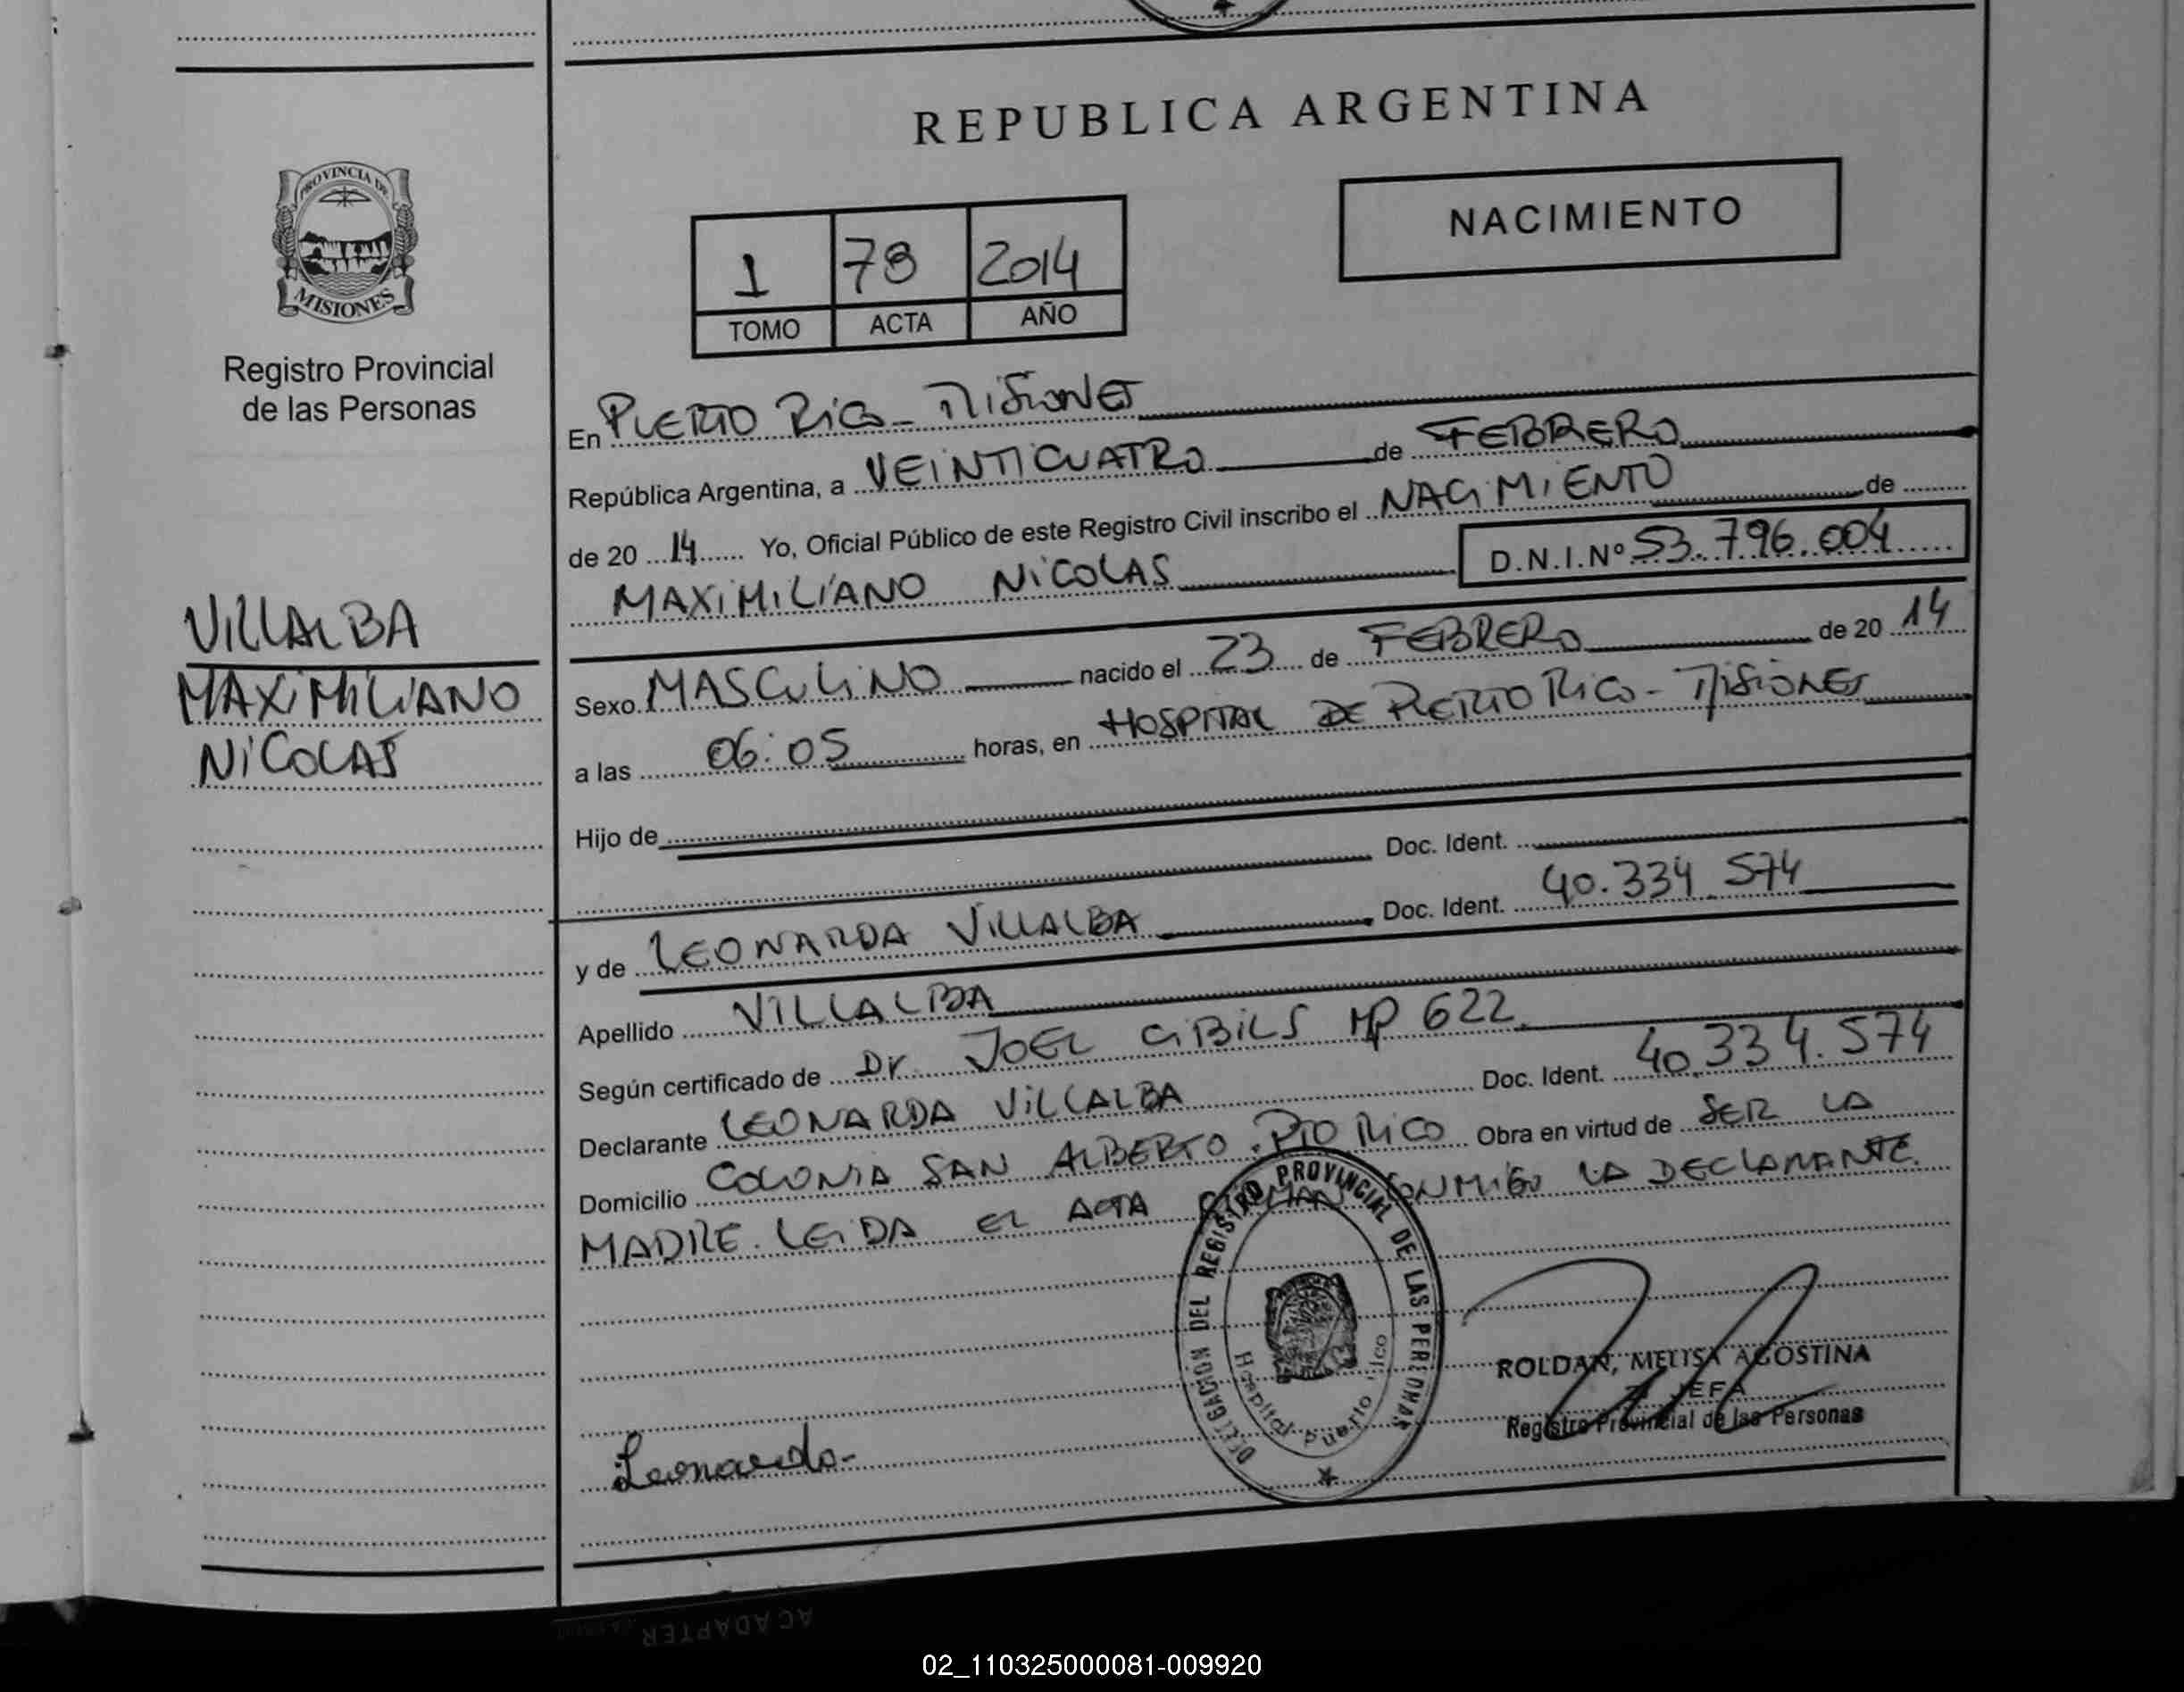 REPUBLICA ARGENTINA
PROVINCIA DE
MISIONES
Registro Provincial
de las Personas
NACIMIENTO
1 78 2014
TOMO ACTA AÑO
En PUERTO RICO - MISIONES
República Argentina, a VEINTICUATRO de FEBRERO
de 20 14 Yo, Oficial Público de este Registro Civil inscribo el NACIMIENTO de
MAXIMILIANO NICOLAS D.N.I.Nº 53.796.004
VILLALBA
MAXIMILIANO
NICOLAS
Sexo MASCULINO nacido el 23 de FEBRERO de 20 14
a las 06:05 horas, en HOSPITAL DE PUERTO RICO - MISIONES
Hijo de
Doc. Ident.
y de LEONARDA VILLALBA Doc. Ident. 40.334.574
Apellido VILLALBA
Según certificado de Dr. JOEL CIBILS MP 622
Declarante LEONARDA VILLALBA Doc. Ident. 40.334.574
Domicilio COLONIA SAN ALBERTO. PTO RICO Obra en virtud de SER LA
MADRE. LEIDA EL ACTA FIRMAN CONMIGO LA DECLARANTE.
DELEGACION DEL REGISTRO PROVINCIAL DE LAS PERSONAS
Hospital Puerto Rico
ROLDAN, MELISA AGOSTINA
JEFA
Registro Provincial de las Personas
Leonarda
AC ADAPTER
02_110325000081-009920